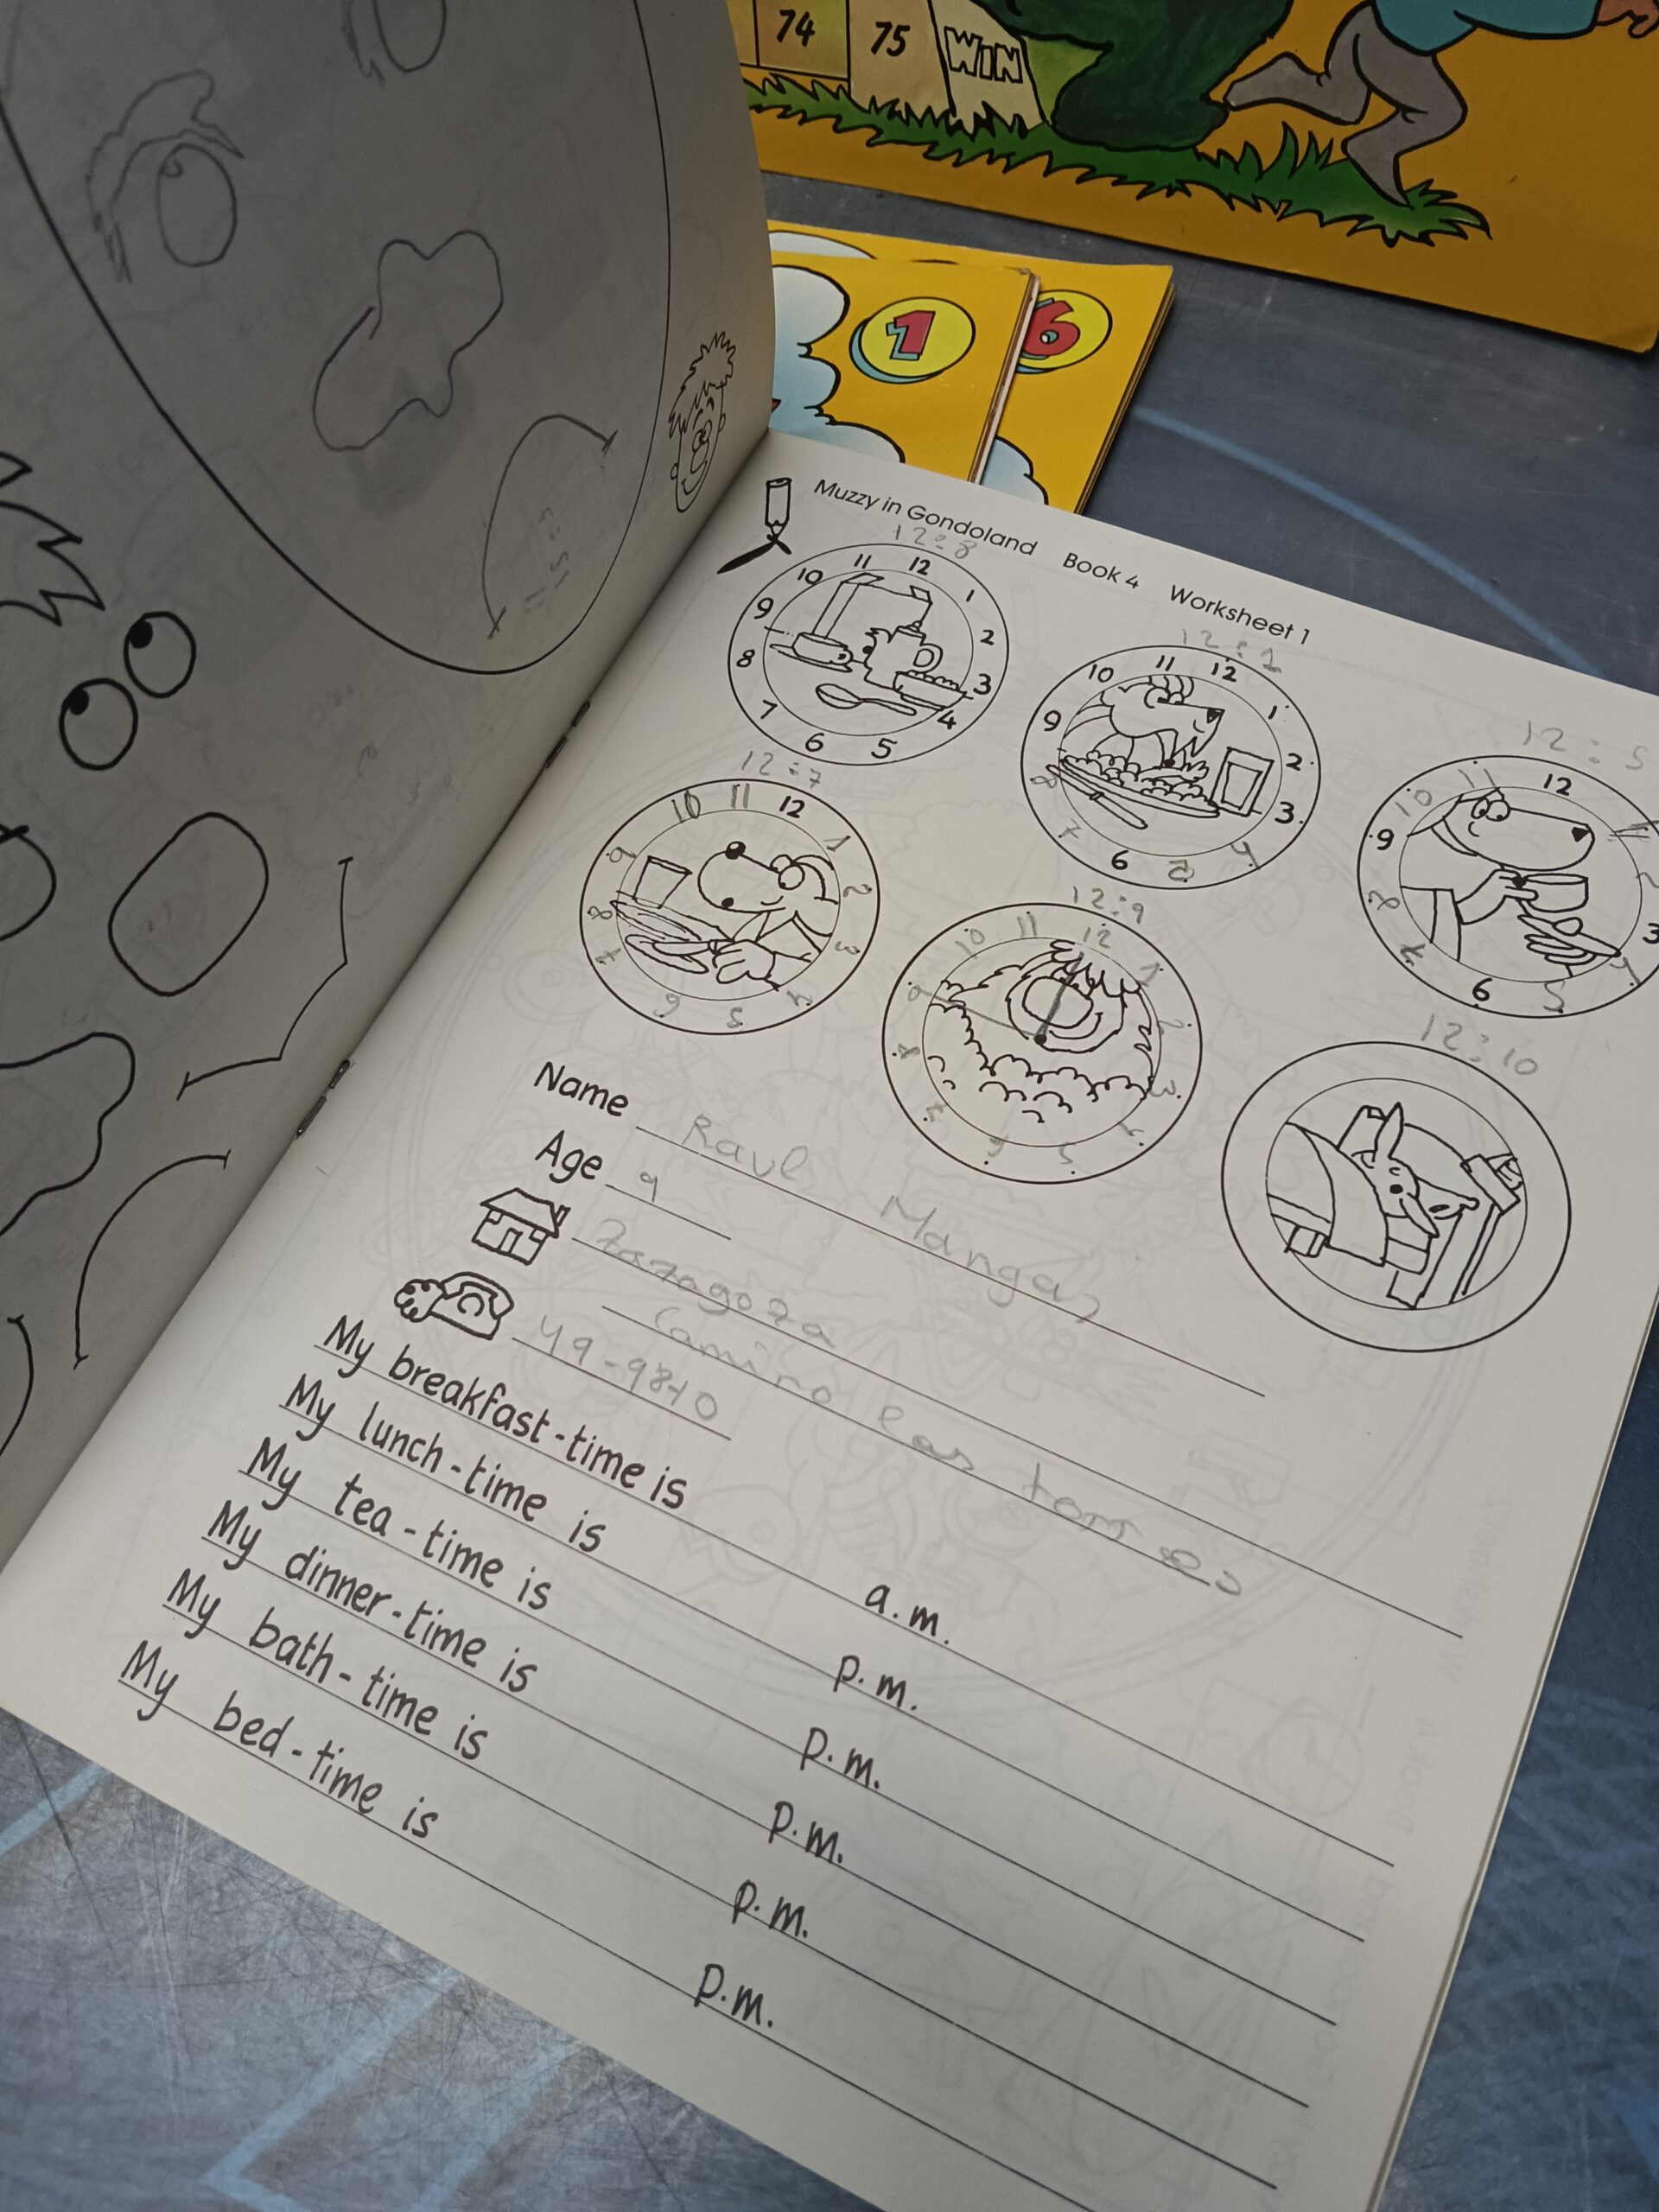 74 75 WIN
1 6
Muzzy in Gondoland Book 4 Worksheet 1
12:8
11 12 1 2 3 4 5 6 7 8 9 10
12:1
10 11 12 1 2 3 4 5 6 7 8 9
12:5
10 11 12 3 4 5 6 7 8 9
12:7
10 11 12 1 2 3 4 5 6 7 8 9
12:9
10 11 12 1 2 3 4 5 6 7 8 9
12:10
Name Raul Mangas
Age 9
Zazagoza
Camino las torres
49-9840
My breakfast-time is a.m.
My lunch-time is p.m.
My tea-time is p.m.
My dinner-time is p.m.
My bath-time is p.m.
My bed-time is p.m.